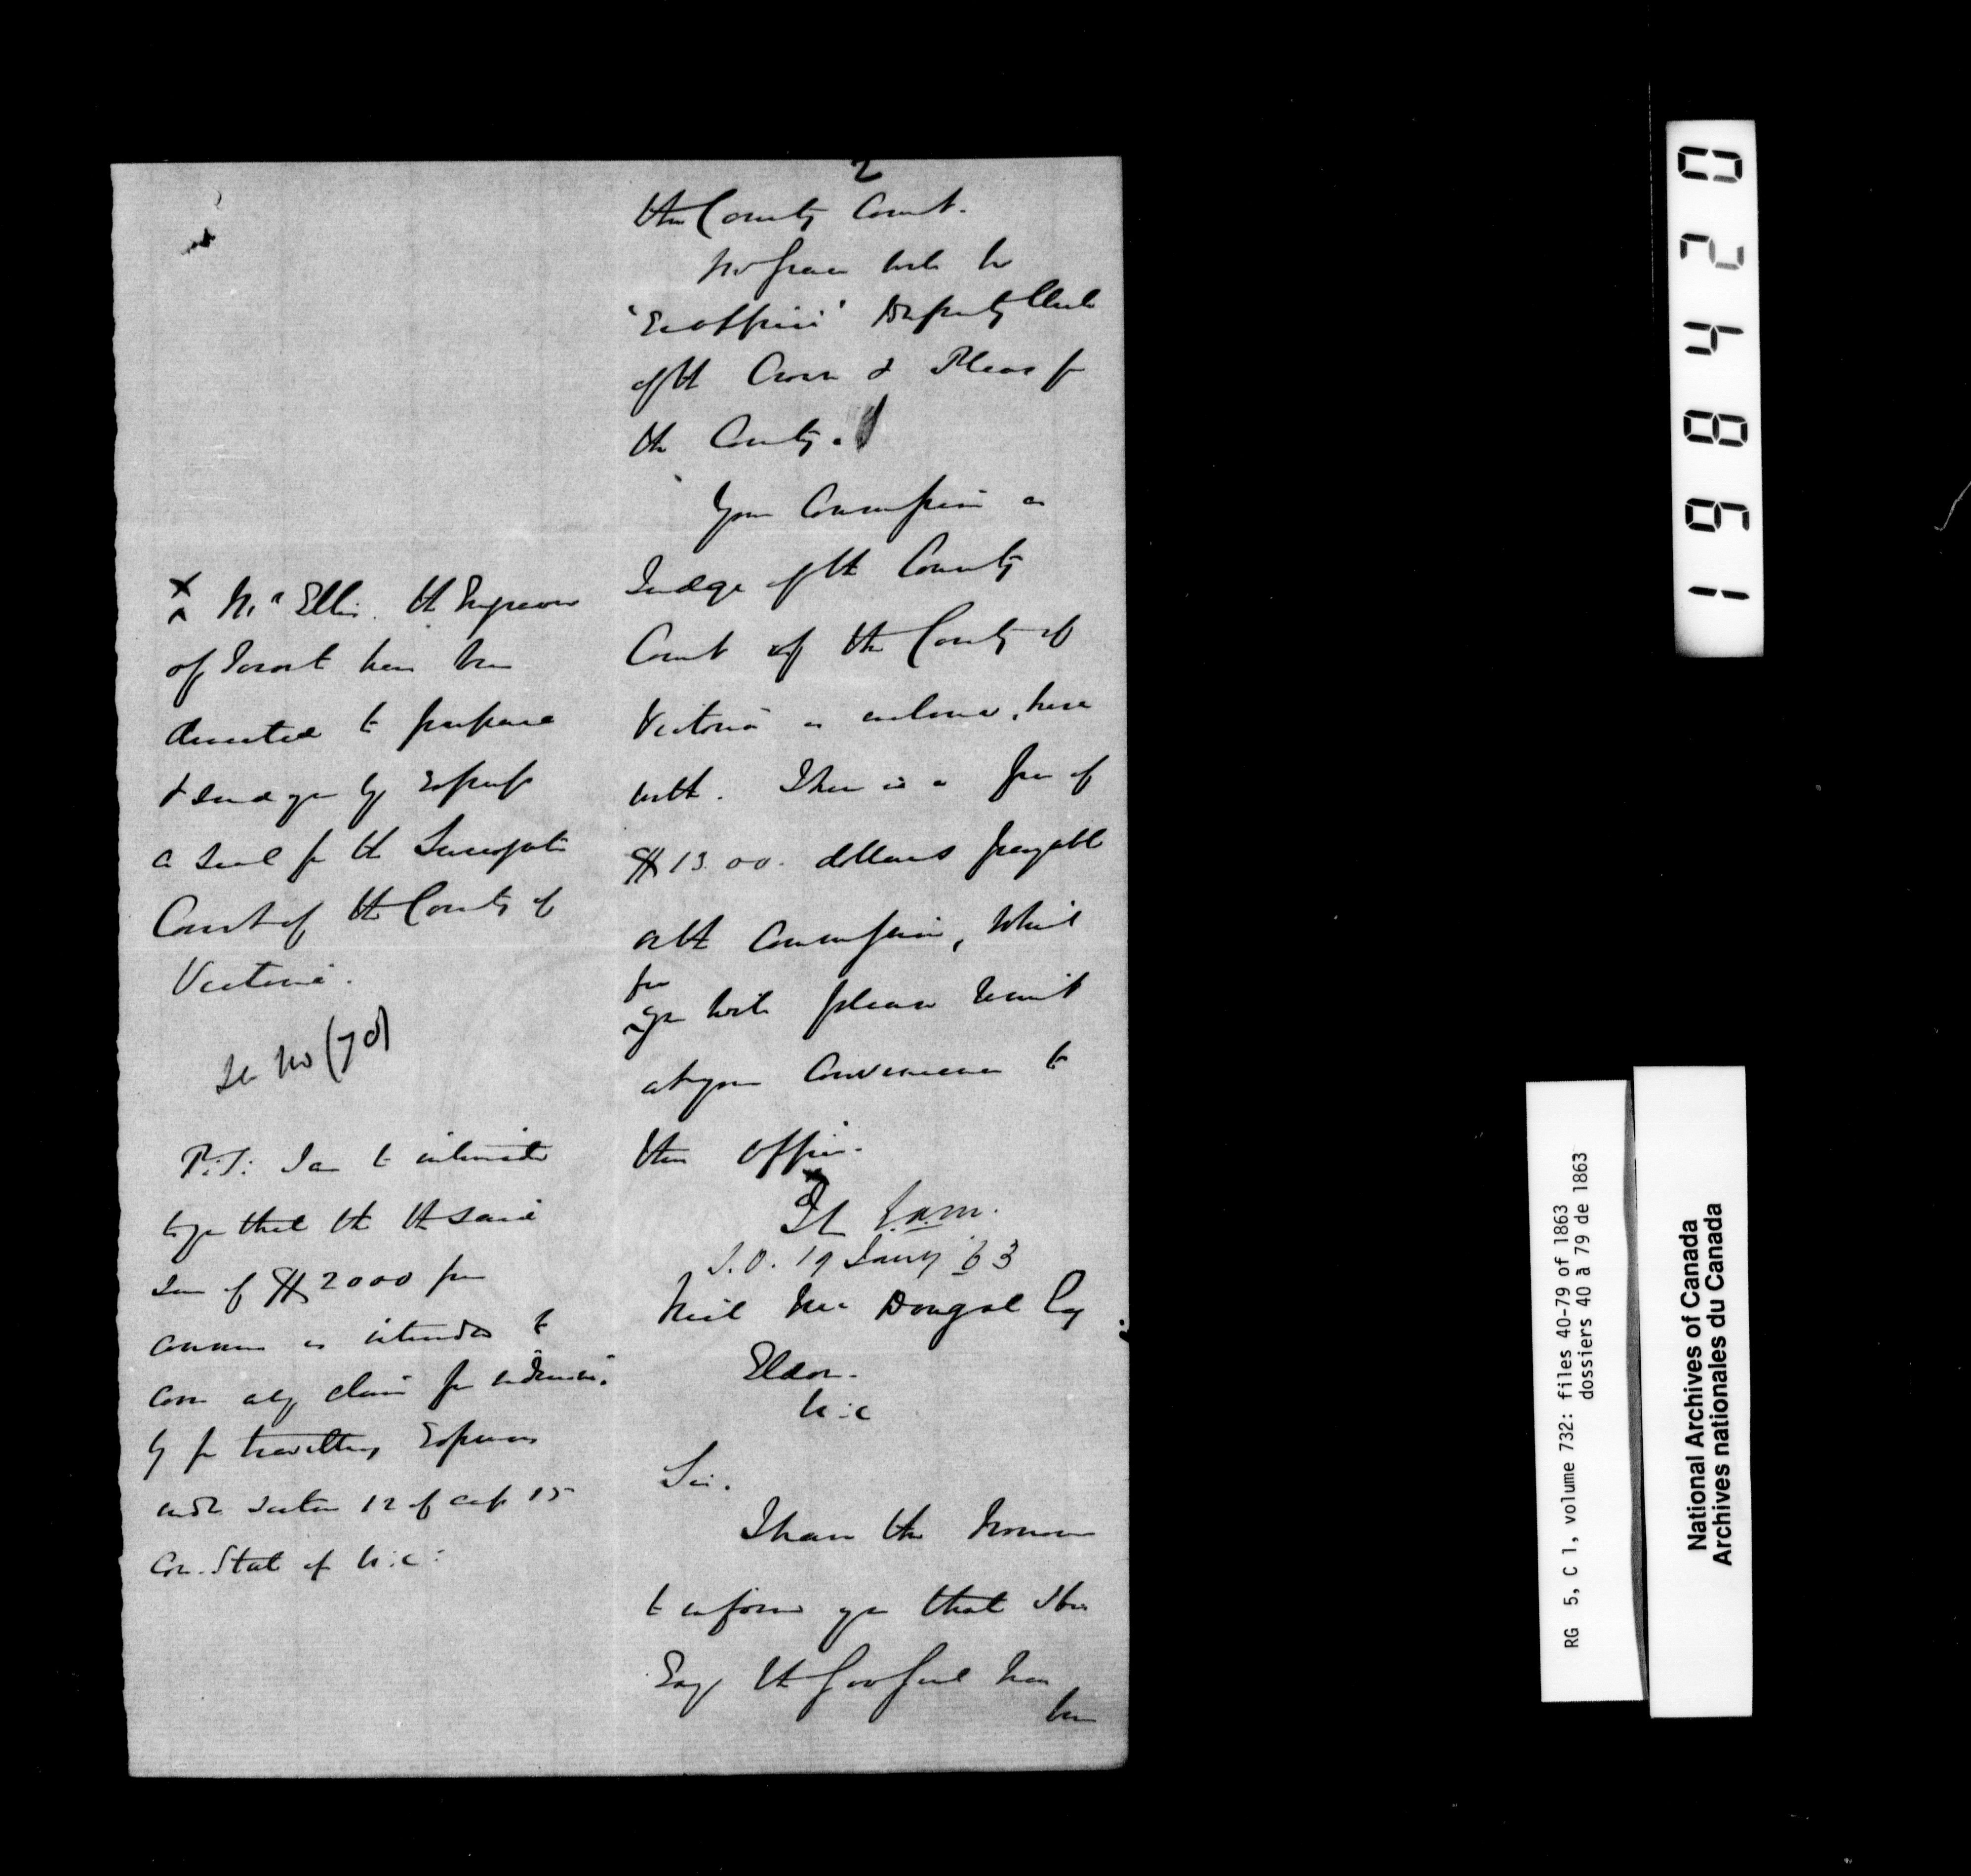 2
the County Court.
will be
'Ex officio' Deputy Clerk
of the Crown & Pleas for
the County.
Your Commission as
Judge of the County
Court of the County of
Victoria is enclosed, here
with. There is a fee of
$13.00. dollars payable
on the Commission, which
fee
you will please remit
at your convenience to
this office.
E.A.M.
S.O. 19 Jany 63
Neil McDougal Esq
Eldon.
U.C
Sir.
I have the honour
to inform you that His
Exy the Gov Genl has
been
x
^ Mr Ellis. the Engraver
of Toronto has been
directed to prepare
& send you by Express
a seal for the Surrogate
Court of the County of
Victoria.
See No (70)
P.S: I am to intimate
to you that the the said
sum of $2000 per
annum is intended to
cover any claim for indemni-
ty for travelling Expenses
under section 12 of cap 15
Con. Stat of U.C:
0
2
4
8
9
1
RG 5, C 1, volume 732: files 40-79 of 1863
dossiers 40 à 79 de 1863
National Archives of Canada
Archives nationales du Canada